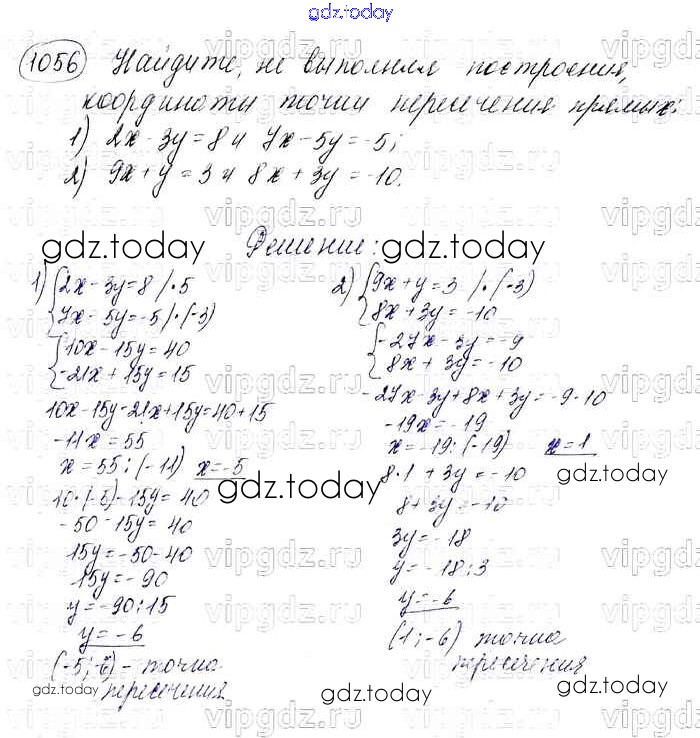 gdz.today
1056 Найдите, не выполняя построения,
координаты точки пересечения прямых:
1) 2x - 3y = 8 и 7x - 5y = -5;
2) 9x + y = 3 и 8x + 3y = -10.
Решение:
gdz.today gdz.today
1) {2x - 3y = 8 /·5
7x - 5y = -5 /·(-3)
{10x - 15y = 40
-21x + 15y = 15
10x - 15y - 21x + 15y = 40 + 15
-11x = 55
x = 55 : (-11) x = -5
gdz.today
10·(-5) - 15y = 40
-50 - 15y = 40
15y = -50 - 40
15y = -90
y = -90 : 15
y = -6
(-5; -6) - точка
пересечения
gdz.today
2) {9x + y = 3 /·(-3)
8x + 3y = -10
{-27x - 3y = -9
8x + 3y = -10
-27x - 3y + 8x + 3y = -9 - 10
-19x = -19
x = -19 : (-19) x = 1
8·1 + 3y = -10
gdz.today
8 + 3y = -10
3y = -18
y = -18 : 3
y = -6
(1; -6) точка
пересечения
gdz.today
gdz.today
vipgdz.ru